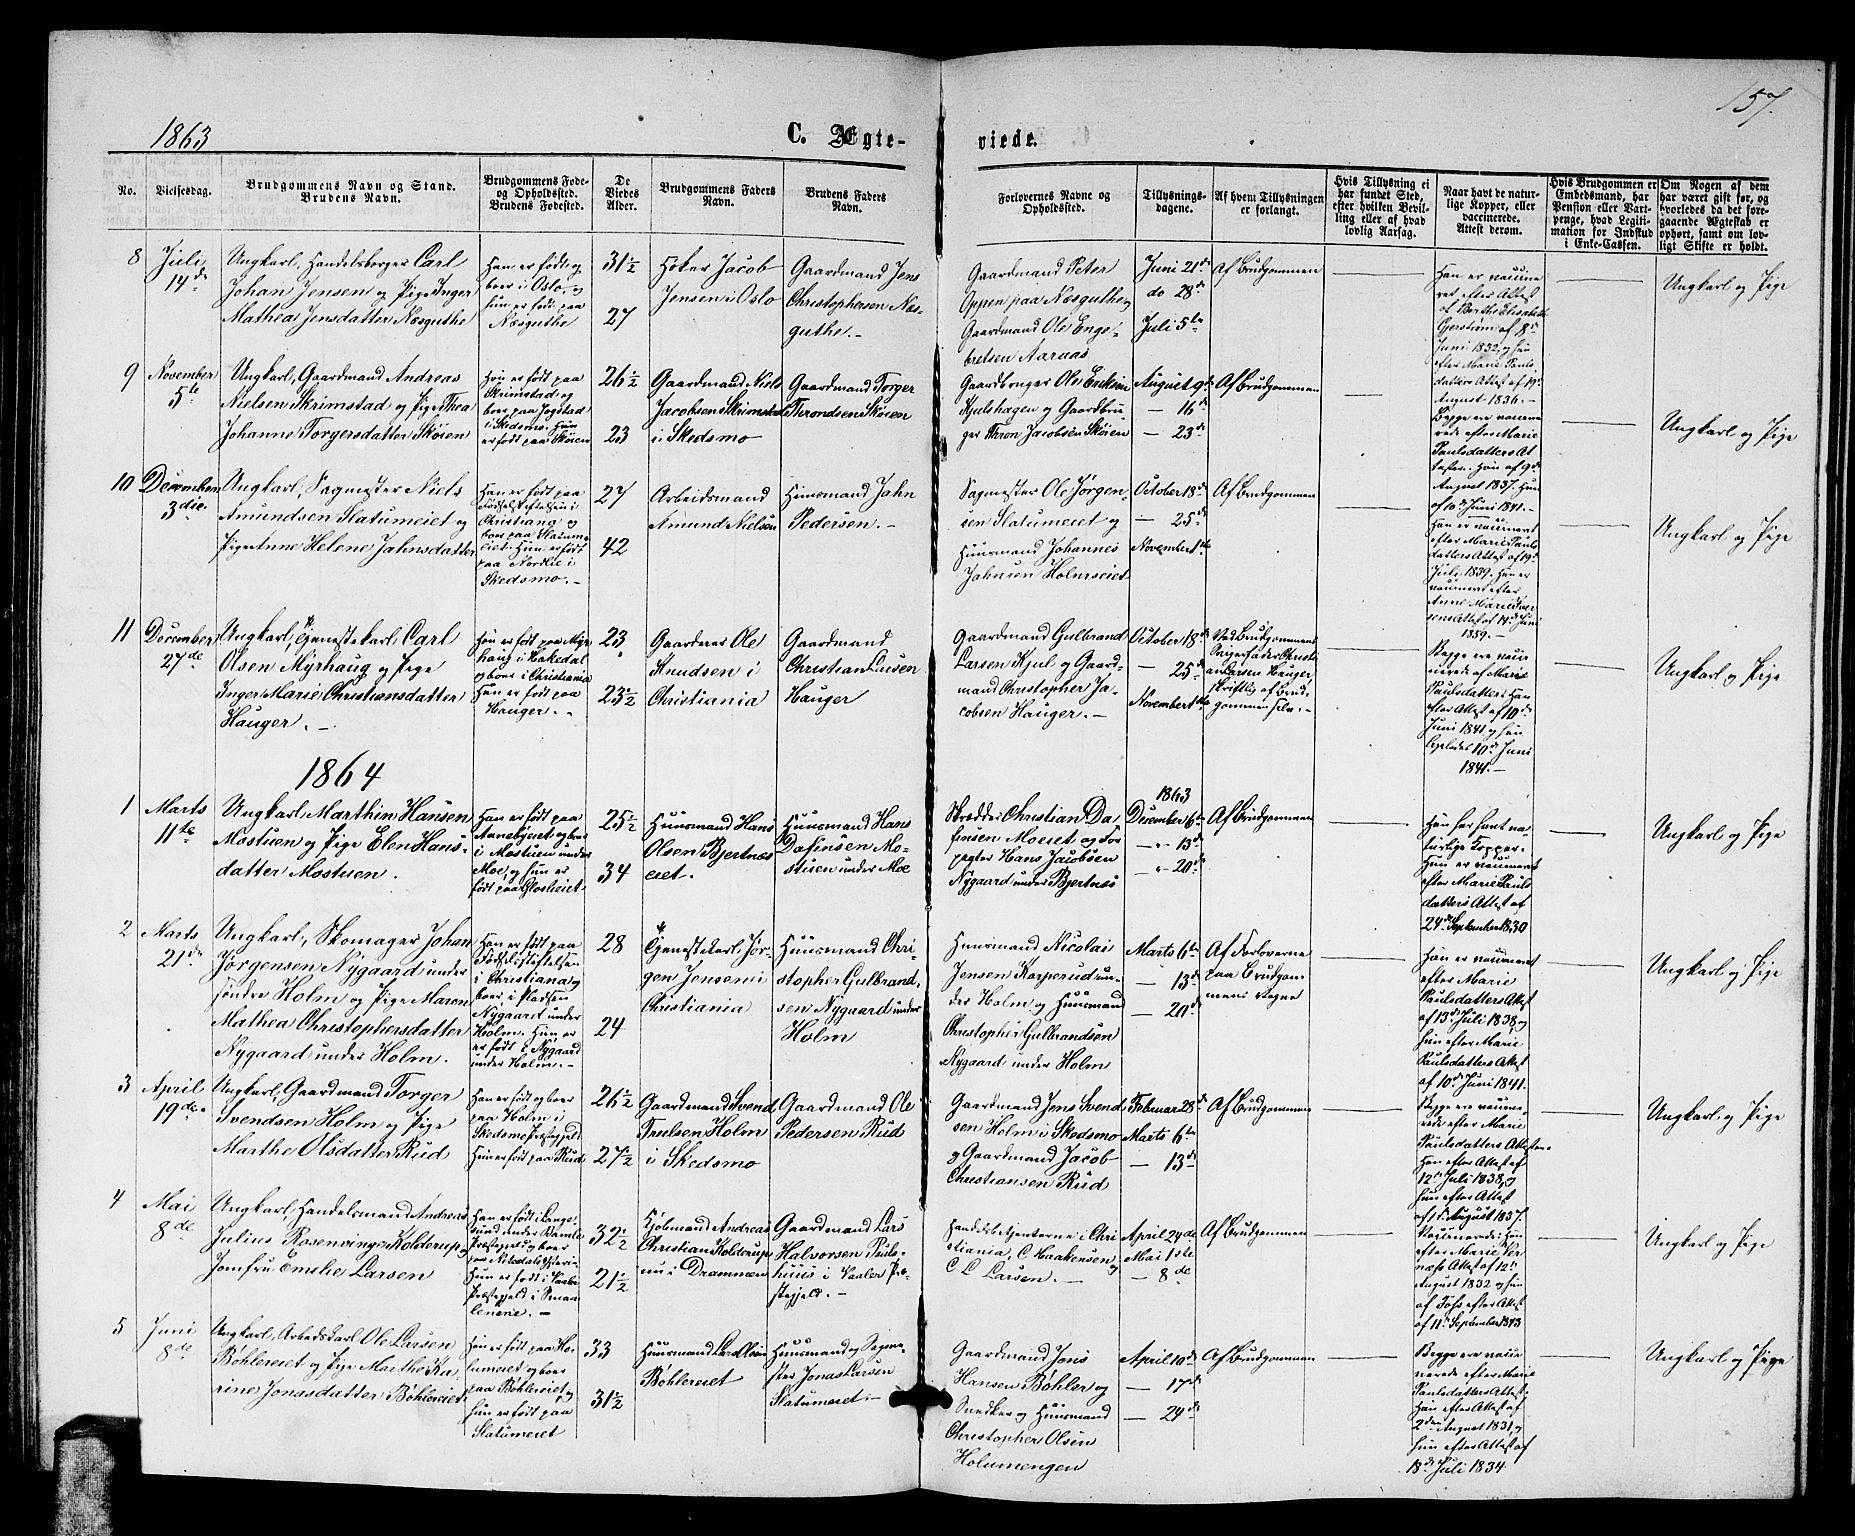 157.
1863
C. Ægte-
viede.
No.
Vielsesdag.
Brudgommens Navn og Stand.
Brudens Navn.
Brudgommens Føde-
og Opholdssted.
Brudens Fødested.
De
Viedes
Alder.
Brudgommens Faders
Navn.
Brudens Faders
Navn.
Forlovernes Navne og
Opholdssted.
Tillysnings-
dagene.
Af hvem Tillysningen
er forlangt.
Hvis Tillysning ei
har fundet Sted,
efter hvilken Bevil-
ling eller af hvad
lovlig Aarsag.
Naar havt de natur-
lige Kopper, eller
vaccinerede.
Attest derom.
Hvis Brudgommen er
Embedsmand, har
Pension eller Vart-
penge, hvad Legiti-
mation for Indskud
i Enke-Cassen.
Om Nogen af dem
har været gift før, og
hvorledes da det fore-
gaaende Ægteskab er
ophørt, samt om lov-
ligt Skifte er holdt.
8
Juli
14de
Ungkarl, Handelsborger Carl
Johan Jensen og Pige Inger
Mathea Jensdatter Næsguthe
Han er født og
boer i Oslo, og
hun er født paa
Næsguthe
31½
27
Høker Jacob
Jensen i Oslo
Gaardmand Jens
Christophersen Næs-
guthe.-
Gaardmand Peter
Oppen paa Næsguthe og
Gaardmand Ole Enge-
bretsen Aaraas
Juni 21de
do 28de
Juli 5te
Af Brudgommen
Han er vaccine
ret efter Attest
af Berthe Elisabeth
Gjerstrøm af 8de
Juni 1832, og hun
efter Marie Pauls-
datters Attest af 19de
August 1836.-
Ungkarl og Pige
9
November
5te
Ungkarl, Gaardmand Andreas
Nielsen Skrimstad og Pige Thea
Johanne Torgersdatter Skøien
Han er født paa
Skrimstad og
boer paa Jogstad
i Skedsmo. Hun
er født paa Skøien
26½
23
Gaardmand Niels
Jacobsen Skrimstad
i Skedsmo
Gaardmand Torger
Throndsen Skøien
Gaardbruger Ole Eriksen
Kjulshagen og Gaardbru-
ger Thron Jacobsen Skøien
August 9de
- 16de
- 23de
Af Brudgommen
Begge ere vaccine
rede efter Marie
Paulsdatters At
tester. Han af 9de
August 1837. Hun
af 10de Juni 1841.-
Ungkarl og Pige
10
December
3die
Ungkarl, Sagmester Niels
Amundsen Slatumeiet og
Pige Anne Helene Jahnsdatter
Han er født paa
Fødselsstiftelsen i
Christiana og
boer paa Slatum-
eiet. Hun er født
paa Nordlie i
Skedsmo.-
27
42
Arbeidsmand
Amund Nielsen
Huusmand Jahn
Pedersen.-
Sagmester Ole Jørgen-
sen Slatumeiet og
Huusmand Johannes
Jahnsen Holmseiet
October 18de
- 25de
November 1ste
Af Brudgommen
Han er vaccineret
efter Marie Pauls
datters Attest af 19de
Juli 1839. Hun er
vaccineret efter
Anne Marie
Attest af 14de Juni
1859.-
Ungkarl og Pige
11
December
27de
Ungkarl, Tjenestekarl Carl
Olsen Myrhaug og Pige
Inger Marie Christiansdatter
Hauger.-
Han er født paa Myr
haug i Hakedal
og boer i Christiania
Hun er født paa
Hauger.-
23
23½
Gaardeier Ole
Knudsen i
Christiania
Gaardmand
Christian Larsen
Hauger
Gaardmand Gulbrand
Larsen Kjul og Gaard-
mand Christopher Ja-
cobsen Hauger.-
October 18de
- 25de
November 1ste
Ved Brudgommens
Svigerfader Christi
an Larsen Hauger,
skriftlig af Brud-
gommen selv.-
Begge ere vacci
nerede af Marie
Paulsdatter. Han
efter Attest af 19de
Juni 1841 og hun
ligeledes 10de Juni
1841.-
Ungkarl og Pige
1864
1
Marts
11te
Ungkarl Marthin Hansen
Mostuen og Pige Elen Hans-
datter Mostuen.
Han er født paa
Annebyeiet og boer
i Mostuen under
Moe, og hun er
født paa Gloslieiet
25½
34
Huusmand Hans
Olsen Bjertnæs
eiet.
Huusmand Hans
Dafinsen Mo-
stuen under Moe
Skrædder Christian Da-
finsen Moeiet og For
pagter Hans Jacobsen
Nygaard under Bjertnæs
1863
December 6te
-"- 13de
-"- 20de
Af Brudgommen
Han har havt na
turlige Kopper.
Hun er vaccineret
efter Marie Pauls
datters Attest af
24de September 1830
Ungkarl og Pige
2
Marts
21de
Ungkarl, Skomager Johan
Jørgensen Nygaard under
søndre Holm og Pige Maren
Mathea Christophersdatter
Nygaard under Holm.
Han er født paa
Fødselsstiftelsen
i Christiana og
boer i Pladsen
Nygaard under
Holm. Hun er
er født i Nygaard
under Holm.-
28
24
Tjenestekarl Jør-
gen Jensen i
Christiania
Huusmand Chri-
stopher Gulbrand-
sen Nygaard under
Holm
Huusmand Nicolai
Jensen Korperud un-
der Holm og Huusmand
Christopher Gulbrandsen
Nygaard under Holm
Marts 6te
- 13de
- 20de
Af Forloverne
paa Brudgom
mens vegne
Han er vaccineret
efter Marie
Paulsdatters Attest
af 13de Juli 1838, og
hun efter Marie
Paulsdatters Attest
af 10de Juni 1841.
Ungkarl og Pige
3
April
19de.
Ungkarl, Gaardmand Torger
Svendsen Holm og Pige
Marthe Olsdatter Rud
Han er født og boer
paa Holm i
Skedsmo Præstegjeld
Hun er født paa Rud
26½
27½
Gaardmand Svend
Truelsen Holm
i Skedsmo
Gaardmand Ole
Pedersen Rud
Gaardmand Jens Svend
sen Holm i Skedsmo
og Gaardmand Jacob
Christiansen Rud
Februar 28de
Marts 6te
- 13de
Af Brudgommen
Begge ere vaccine-
rede efter Marie
Paulsdatters Attester.
Han efter Attest af
12te Juli 1838, og
hun efter Attest
af 1de August 1837.
Ungkarl og Pige
4
Mai
8de
Ungkarl Handelsmand Andreas
Julius Rosenvinge Kolderup og
Jomfru Emelie Larsen
Han er født i Lange
sund under Bamle
Præstegjeld og boer
paa Nitedals
Hun er født i Vaaler
Præstegjeld i Smaa-
lenene.-
32½
21½
Kjøbmand Andreas
Christian Kolderup
nu i Drammen
Gaardmand Lars
Halvorsen Puls-
huus i Vaaler Præ-
stegjeld.-
Handelsbetjenterne i Chri
stiania, C Haakensen og
C L Larsen.-
April 24de
Mai 1ste
- 8de
Af Brudgommen
Vaccinerede: Han
efter Marie
Attest af 12te
August 1832 og hun
af efter Attest
af 11te September 1843
Ungkarl og Pige
5
Juni
8de
Ungkarl, Arbeidskarl Ole Larsen
Bøhlereiet og Pige Marthe Ka-
rine Jonasdatter Bøhlereiet
Han er født paa Ho-
lumeiet og boer
paa Bøhlereiet, og
hun er født paa
Slatumeiet
33
31½
Huusmand Lars Olsen
Bøhlereiet
Huusmand og Sagme-
ster Jonas Larsen
Slatumeiet.-
Gaardmand Jonis
Hansen Bøhler og
Snedker og Huusmand
Christopher Olsen
Holumengen
April 10de
- 17de
- 24de
Af Brudgommen
Begge ere vacci
nerede efter Marie
Paulsdatters Attest.
Han efter Attest af
2den August 1831, og
hun efter Attest af
18de Juli 1834
Ungkarl og Pige